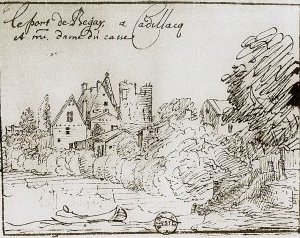 le port de Begay, a Cadillacq
et me. dame du casse